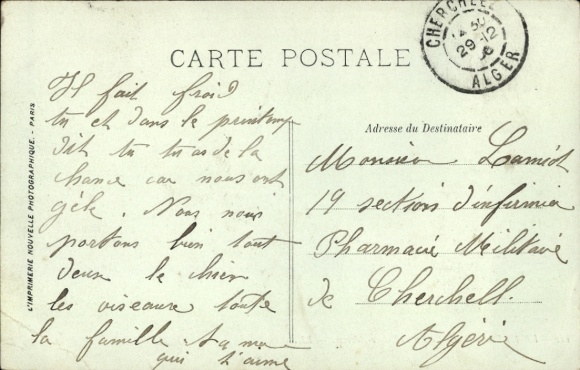 CARTE POSTALE
CHERCHELL
29 -12
ALGER
Il fait froid
tu et dans le printemp
dit tu tu as de la
chance car nous ont
gèle. Nous nous
portons bien tout
deux le chien
les oiseaux toute
la famille
qui t'aime
Adresse du Destinataire
Monsieur Lamiot
19 section d'infirmier
Pharmacie Militaire
de Cherchell.
Algérie
L'IMPRIMERIE NOUVELLE PHOTOGRAPHIQUE. - PARIS